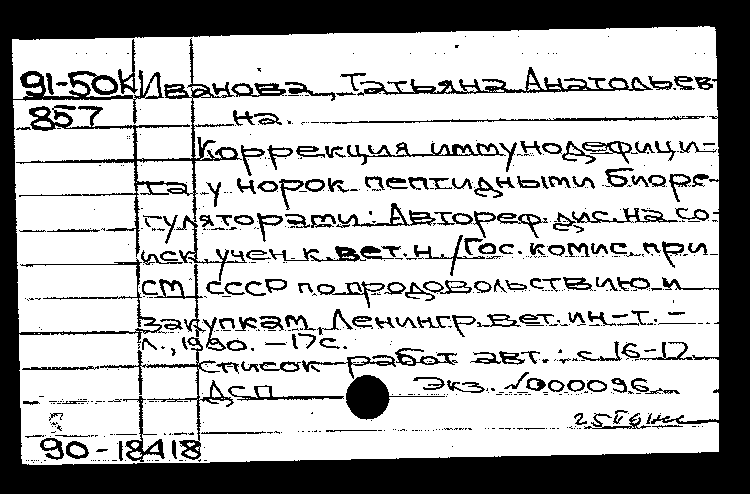 91-50к Иванова, Татьяна Анатольев-
857 на.
Коррекция иммунодефици-
та у норок пептидными биоре-
гуляторами: Автореф. дис. на со-
иск. учен. к. вет. н. /Гос. комис. при
СМ СССР по продовольствию и
закупкам, Ленингр. вет. ин-т. -
Л., 1990. - 17с.
список работ авт.: с. 16-17.
ДСП Экз. №000096
90-18418